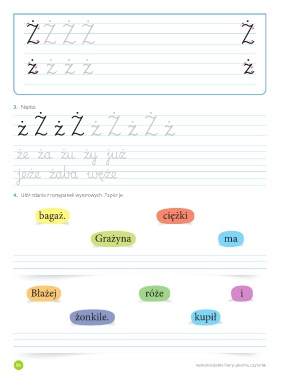 Ż Ż Ż Ż Ż
ż ż ż ż ż
3. Napisz.
ż Ż ż Ż ż Ż ż Ż ż
że ża żu ży już
jeże żaba węże
4. Ułóż zdania z rozsypanek wyrazowych. Zapisz je.
bagaż. ciężki
Grażyna ma
Błażej róże i
żonkile. kupił